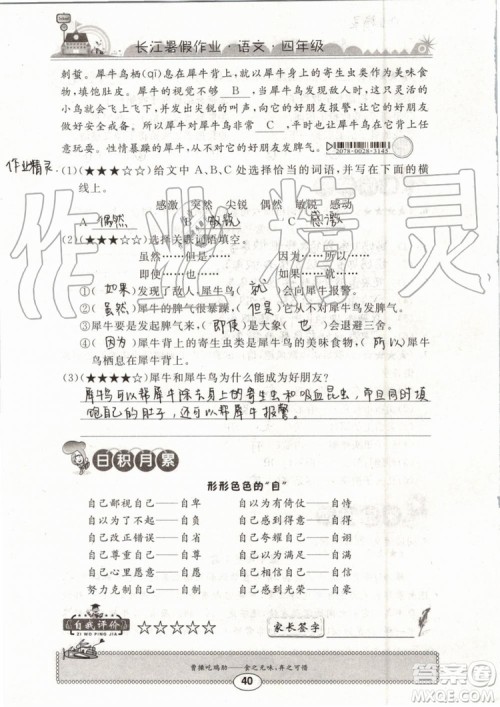 长江暑假作业·语文·四年级
刺蜇。犀牛鸟栖(qī)息在犀牛背上,以犀牛身上的寄生虫类作为美味食
物,填饱肚皮。犀牛的听觉、嗅觉不够 B ,这只灵活的
小鸟就会飞上飞下,并发出尖锐的叫声,向它的好朋友报警,让它的好朋友
做好防备。犀牛对它的小个子朋友十分 C ,让它在犀牛背上任
意玩耍。性情暴躁的犀牛从不对犀牛鸟这个好朋友发脾气。
2078-0028-3145
作业精灵
(1)(★★★☆☆)给文中 A、B、C 处选择恰当的词语,并写在下面的横
线上。
感激 突然 尖锐 偶然 敏锐 感动
A 偶然 B 敏锐 C 感激
(2)(★★★☆☆)选择关联词语填空。
虽然……但是…… 因为……所以……
即使……也…… 如果……就……
①( 如果 )发现了敌人,犀牛鸟( 就 )会向犀牛报警。
②( 虽然 )犀牛的脾气很暴躁,( 但是 )它从不对犀牛鸟发脾气。
③犀牛发起脾气来,( 即使 )是大象( 也 )会退避三舍。
④( 因为 )犀牛背上的寄生虫类是犀牛鸟的美味食物,( 所以 )犀牛
鸟栖息在犀牛背上。
(3)(★★★★☆)犀牛和犀牛鸟为什么能成为好朋友?
犀牛鸟可以帮犀牛除去身上的寄生虫和吸血昆虫,而且同时填
饱自己的肚子,还可以帮犀牛报警。
作业精灵
日积月累
形形色色的“自”
自己鄙视自己——自卑 自以为有倚仗——自恃
自己以为不起——自负 自己感到得意——自豪
自己改正错误——自新 自己夸耀自己——自大
自己尊重自己——自尊 自己感到惭愧——自愧
自己心里愿意——自愿 自己感到尽责——自慰
努力克制自己——自制 自己相信自己——自信
自我评价
ZI WO PING JIA
☆☆☆☆☆
家长签字
曹操吃鸡肋——食之无味,弃之可惜
40
答案圈